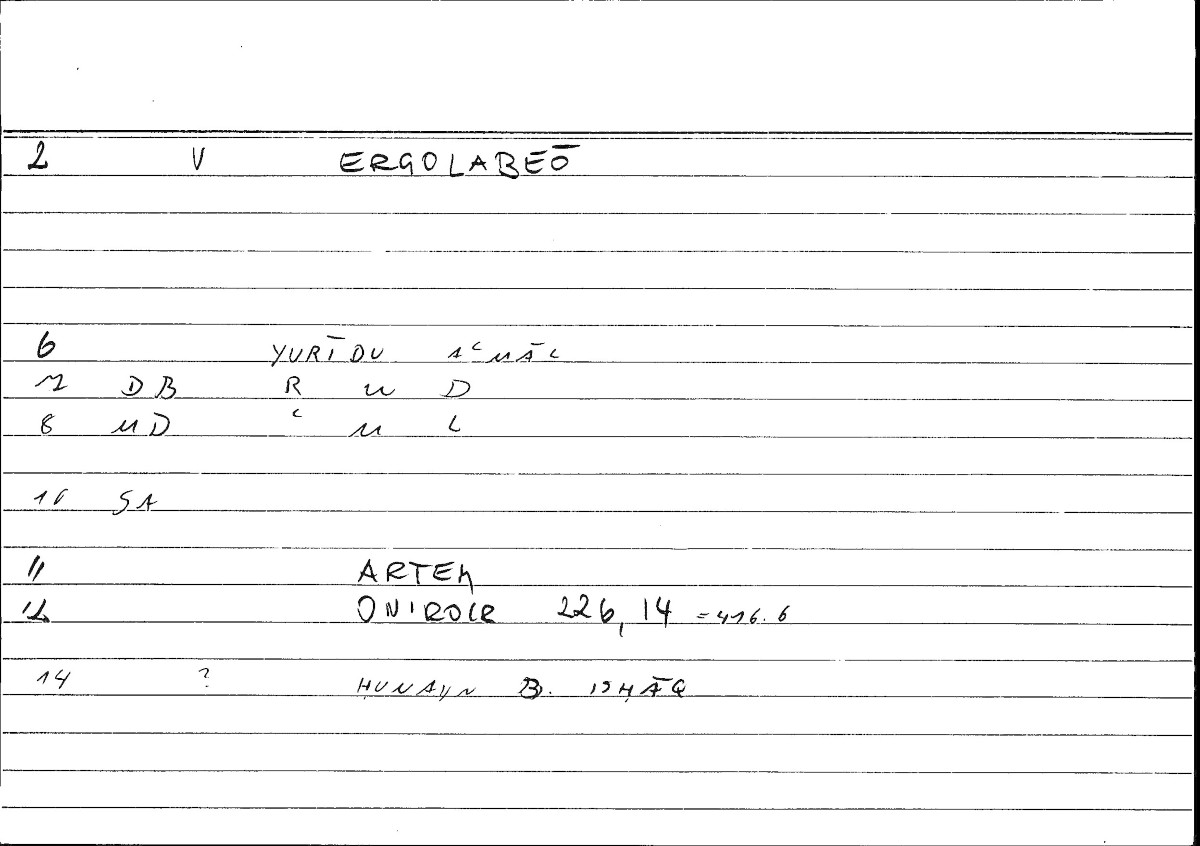 2 V ERGOLABEŌ
6 YURĪDU AʿMĀL
7 DB R W D
8 MD ʿ M L
10 SA
11 ARTEM
12 ONIROCR 226,14 = 416.6
14 ? ḤUNAYN B. ISḤĀQ